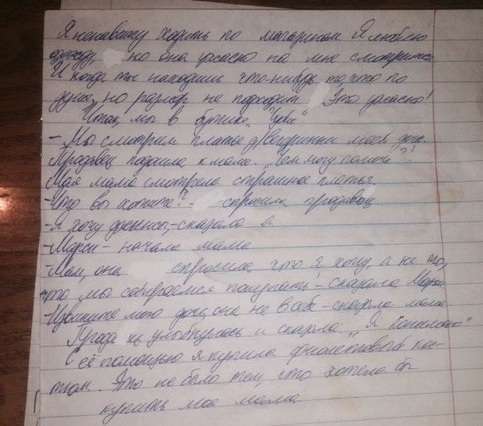 Я ненавижу ходить по магазинам. Я люблю
одежду, но она ужасно на мне смотрится.
И когда ты находишь что-нибудь то, что по
душе, но размер не подходит. Это ужасно!
Итак, мы в бутике
- Мы смотрим платье для моей
Продавец подошла к маме. "Чем могу помочь"?
Моя мама смотрела страшное платье
- Что вы хотите? - спросила продавец
- Я хочу джинсы, - сказала я
- Мэрси - начала мама
- Мам, она спросила что я хочу, а не то,
что мы собираемся покупать - сказала
- Извините мою дочь, она не в себе - сказала мама
и сказала "Я понимаю"
С её помощью я купила фиолетовый кос-
тюм. Это не было тем, что хотела бы
купить моя мама